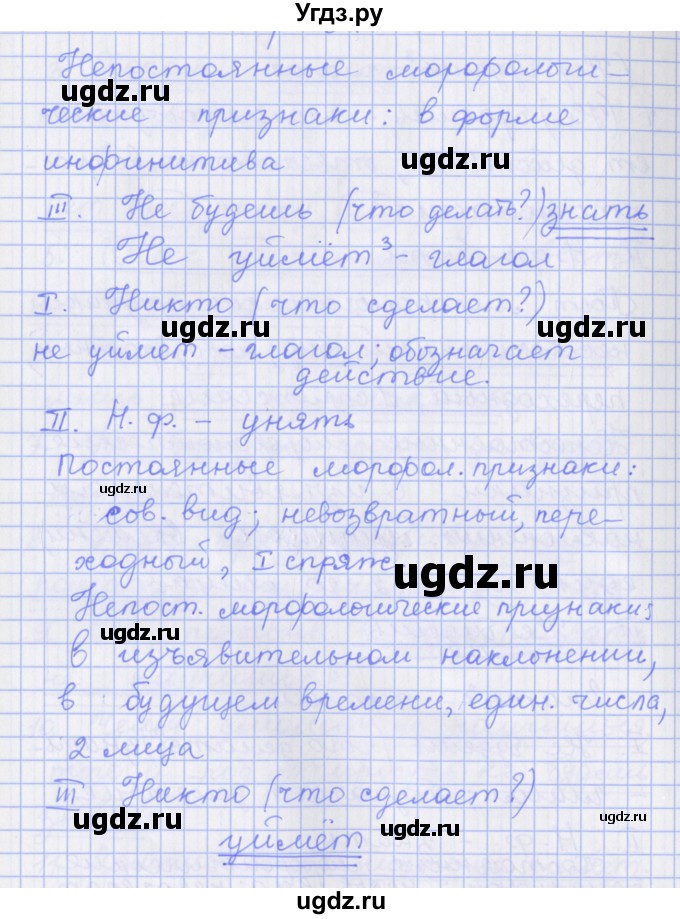 Угдз.ру
Непостоянные морфологи-
ugdz.ru
ческие признаки: в форме
инфинитива ugdz.ru
III. Не будешь (что делать?) знать
Не уймёт³ - глагол
I. Никто (что сделает?)
ugdz.ru ugdz.ru
не уймет - глагол; обозначает
действие.
II. Н. ф. - унять
Постоянные морфол. признаки:
ugdz.ru
сов. вид; невозвратный, пере-
ходный, I спряж
ugdz.ru
Непост. морфологические признаки:
ugdz.ru
в изъявительном наклонении,
в будущем времени, един. числа,
2 лица
III Никто (что сделает?)
ugdz.ru ugdz.ru ugdz.ru
уймёт
ugdz.ru